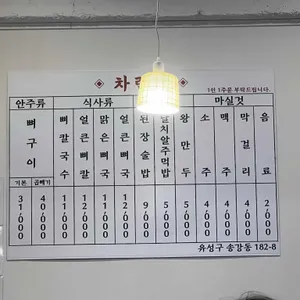 차
1인 1주문 부탁드립니다.
안주류 식사류 마실것
뼈구이
뼈칼국수
얼큰뼈칼
된장술밥
왕만두
소주
맥주
막걸리
음료
기본 곱빼기
31,000
40,000
11,000
12,000
11,000
12,000
9,000
5,000
5,000
4,000
4,000
4,000
2,000
유성구 송강동 182-8